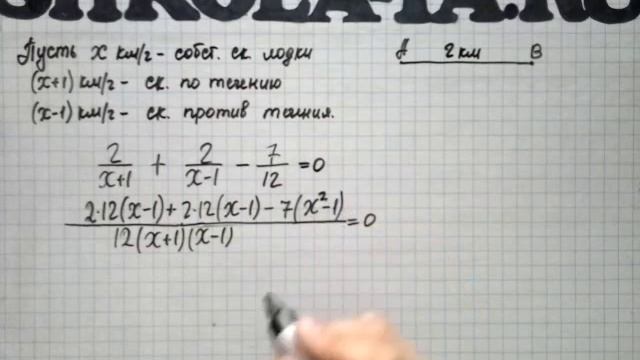 SHKOLA-1A.RU
Пусть x км/ч - собст. ск. лодки
A 2 км B
(x+1) км/ч - ск. по течению
(x-1) км/ч - ск. против течния.
2/(x+1) + 2/(x-1) - 7/12 = 0
(2·12(x-1) + 2·12(x-1) - 7(x²-1))/(12(x+1)(x-1)) = 0